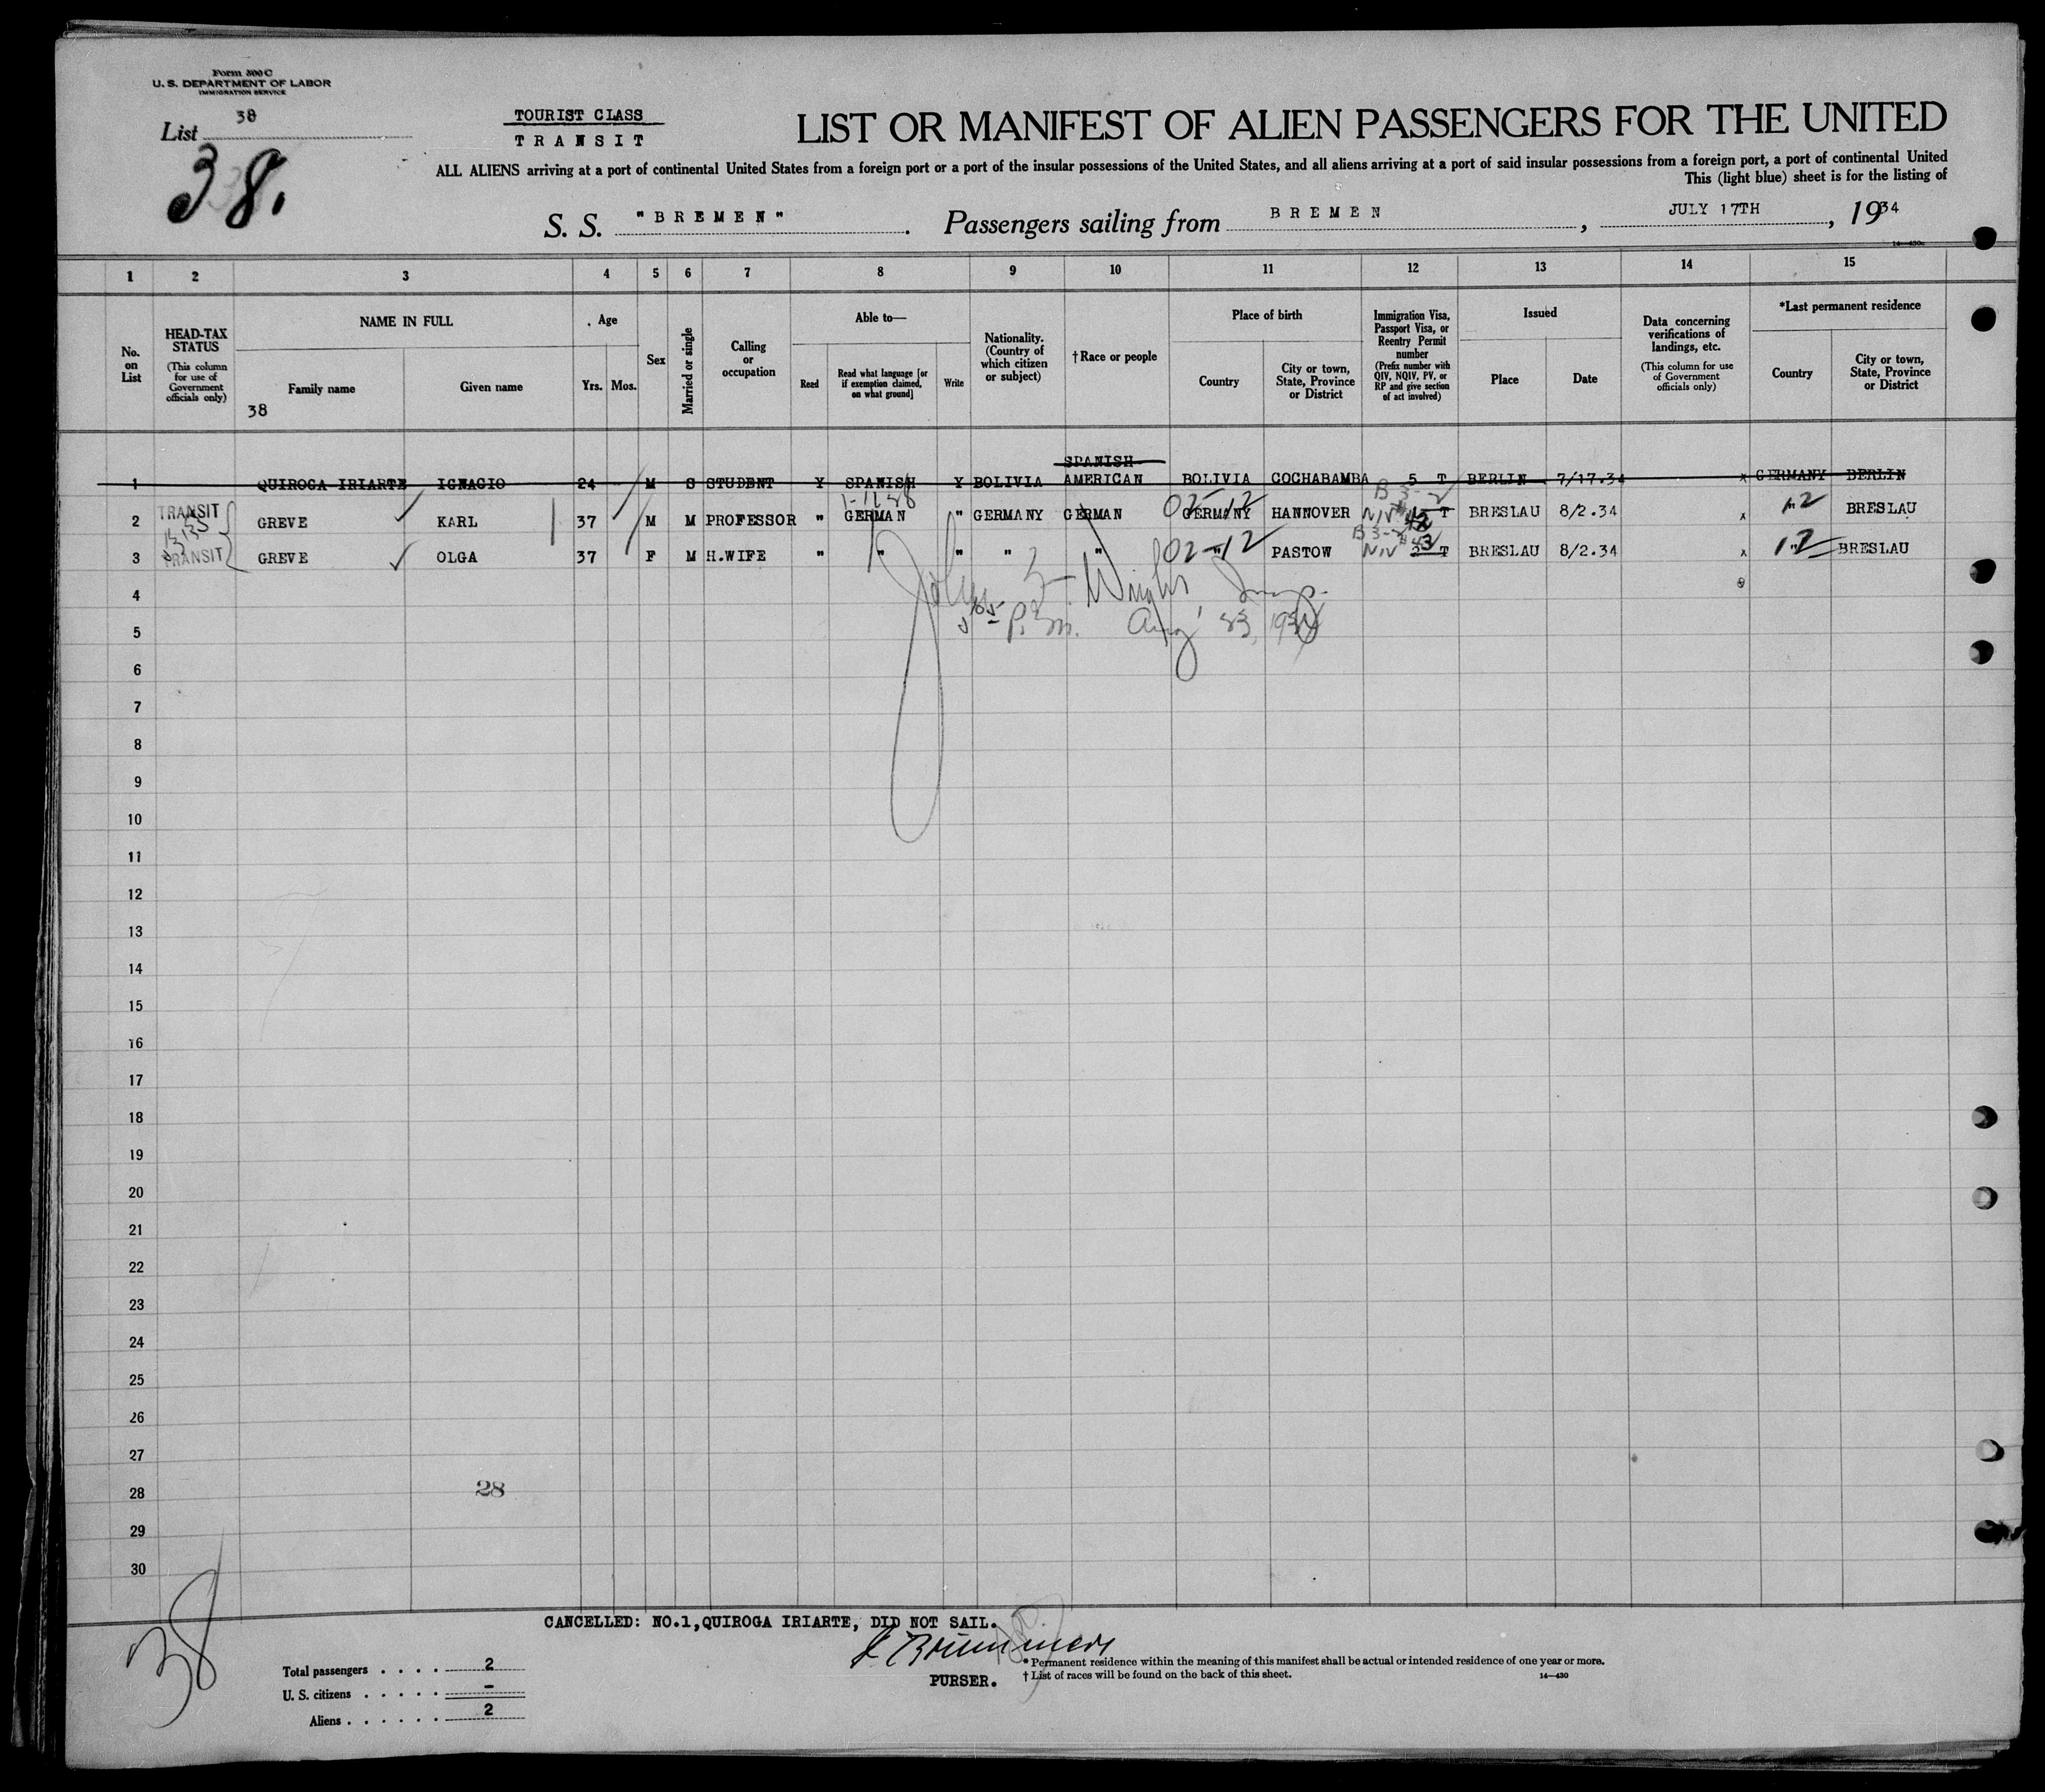 Form 500 C
U. S. DEPARTMENT OF LABOR
IMMIGRATION SERVICE
List 38
38.
TOURIST CLASS
TRANSIT
LIST OR MANIFEST OF ALIEN PASSENGERS FOR THE UNITED
ALL ALIENS arriving at a port of continental United States from a foreign port or a port of the insular possessions of the United States, and all aliens arriving at a port of said insular possessions from a foreign port, a port of continental United
This (light blue) sheet is for the listing of
S. S. "BREMEN". Passengers sailing from BREMEN, JULY 17TH, 1934
14—430
1 2 3 4 5 6 7 8 9 10 11 12 13 14 15
No. on List
HEAD-TAX STATUS (This column for use of Government officials only)
NAME IN FULL
Family name
Given name
38
Age
Yrs. Mos.
Sex
Married or single
Calling or occupation
Able to—
Read
Read what language [or if exemption claimed, on what ground]
Write
Nationality. (Country of which citizen or subject)
†Race or people
Place of birth
Country
City or town, State, Province or District
Immigration Visa, Passport Visa, or Reentry Permit number (Prefix number with QIV, NQIV, PV, or RP and give section of act involved)
Issued
Place
Date
Data concerning verifications of landings, etc. (This column for use of Government officials only)
*Last permanent residence
Country
City or town, State, Province or District
1 QUIROGA IRIARTE IGNACIO 24 M S STUDENT Y SPANISH Y BOLIVIA SPANISH AMERICAN BOLIVIA COCHABAMBA 5 T BERLIN 7/17.34 x GERMANY BERLIN
2 TRANSIT GREVE KARL 37 M M PROFESSOR " GERMAN " GERMANY GERMAN GERMANY 02-12 HANNOVER B3-2 NIV 42 T BRESLAU 8/2.34 x 12 BRESLAU
3 TRANSIT GREVE OLGA 37 F M H.WIFE " " " " " " 02-12 PASTOW B3-2 NIV 43 T BRESLAU 8/2.34 x " 12 BRESLAU
4
5 P.M. Aug 23, 1934
6
7
8
9
10
11
12
13
14
15
16
17
18
19
20
21
22
23
24
25
26
27
28 28
29
30
38
CANCELLED: NO.1, QUIROGA IRIARTE, DID NOT SAIL.
PURSER.
Total passengers . . . . 2
U. S. citizens . . . . . –
Aliens . . . . . . 2
* Permanent residence within the meaning of this manifest shall be actual or intended residence of one year or more.
† List of races will be found on the back of this sheet.
14—430